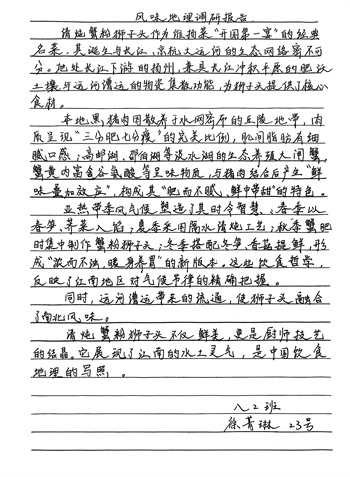 风味地理调研报告
清炖蟹粉狮子头作为淮扬菜"开国第一宴"的经典
名菜，其诞生与长江、京杭大运河的生态网络密不可
分。地处长江下游的扬州，兼具长江冲积平原的肥沃
土壤与运河漕运的物资集散功能，为狮子头提供了核心
食材。
本地黑猪肉因散养于水网密布的丘陵地带，肉
质呈现"三分肥七分瘦"的完美比例，肌间脂肪有细
腻口感；高邮湖、邵伯湖等淡水湖的生态养殖大闸蟹，
蟹黄内富含谷氨酸等呈味物质，与猪肉结合后产生"鲜
味叠加效应"，构成其"肥而不腻、鲜中带甜"的特色。
亚热带季风气候塑造了其时令智慧：春季以
春笋、荠菜入馅；夏季采用隔水清炖工艺；秋季蟹肥
时集中制作蟹粉狮子头；冬季搭配冬笋、香菇提鲜，形
成"浓而不浊，暖身养胃"的新版本，这些饮食哲学，
反映了江南地区对气候节律的精确把握。
同时，运河漕运带来的流通，使狮子头融合
了南北风味。
清炖蟹粉狮子头不仅鲜美，更是厨师技艺
的结晶。它展现了江南的水土灵气，是中国饮食
地理的写照。
八2班
徐菁琳 23号